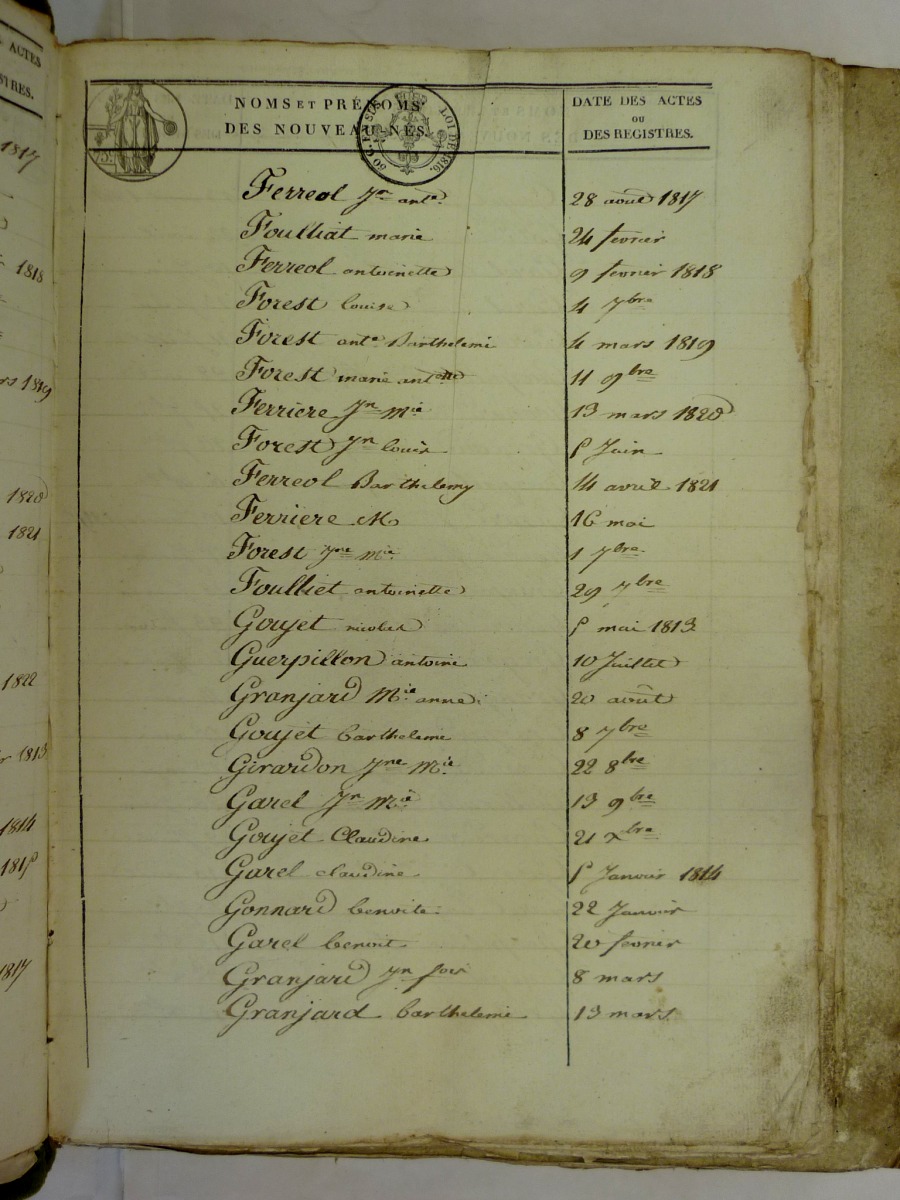 ACTES
STRES.
1817
1818
rs 1819
1820
1821
1822
r 1813
1814
1815
1817
NOMS ET PRÉNOMS
DES NOUVEAU-NÉS.
LOI DE 1816.
DATE DES ACTES
OU
DES REGISTRES.
Ferreol Jn ante. 28 aout 1817
Foulliat marie 24 fevrier
Ferreol antoinette 9 fevrier 1818
Forest louise 4 7bre
Forest ante Barthelemi 4 mars 1819
Forest marie antte 11 9bre
Ferriere Jn Mie 13 mars 1820
Forest Jn louis 5 Juin
Ferreol Barthelemy 14 avril 1821
Ferriere M 16 mai
Forest Jne Mie 1 7bre
Foulliet antoinette 29 7bre
Goujet nicolas 5 mai 1813
Guerpillon antoine 10 Juillet
Granjard Mie anne 20 août
Goujet barthelemi 8 7bre
Girardon Jne Mie 22 8bre
Garel Jn Mie 13 9bre
Goujet Claudine 21 Xbre
Garel claudine 5 Janvier 1814
Gonnard benoite 22 Janvier
Garel benoit 20 fevrier
Granjard Jn fois 8 mars
Granjard barthelemi 13 mars